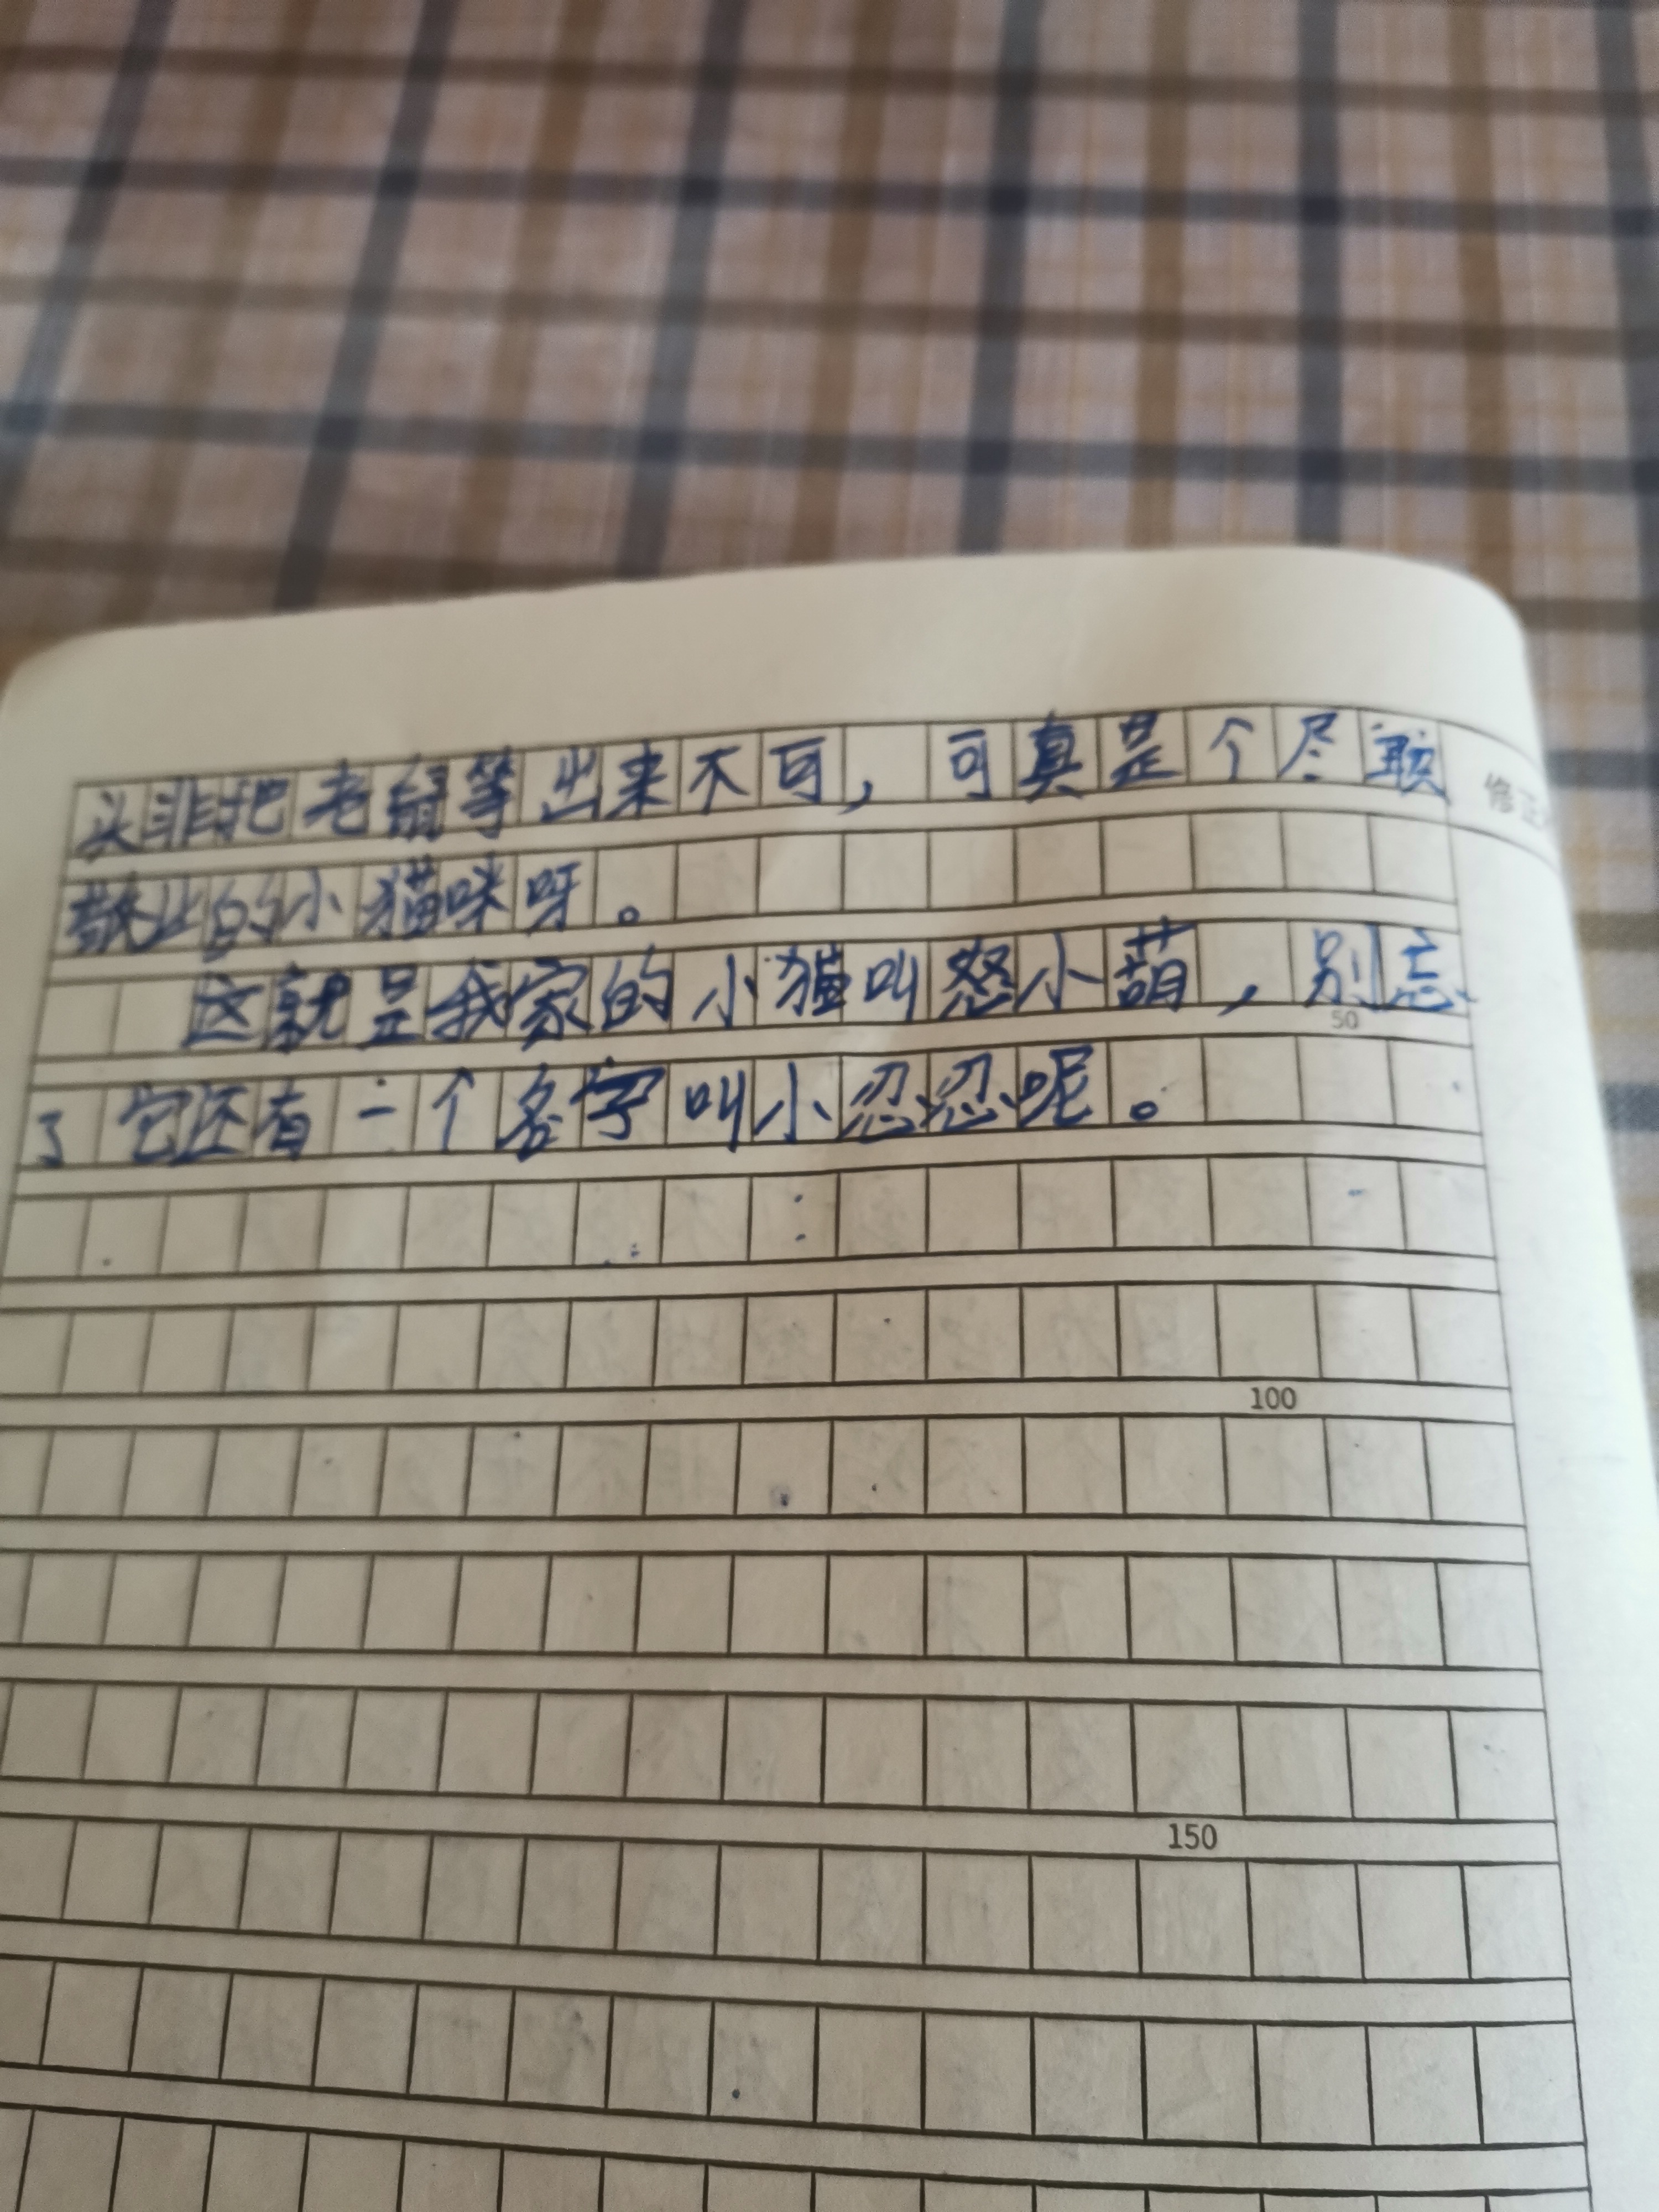 头非把老鼠等出来不可，可真是个尽职
修正
敬业的小猫咪呀。
这就是我家的小猫叫怒小葫，别忘
50
了它还有一个名字叫小忍忍呢。
100
150